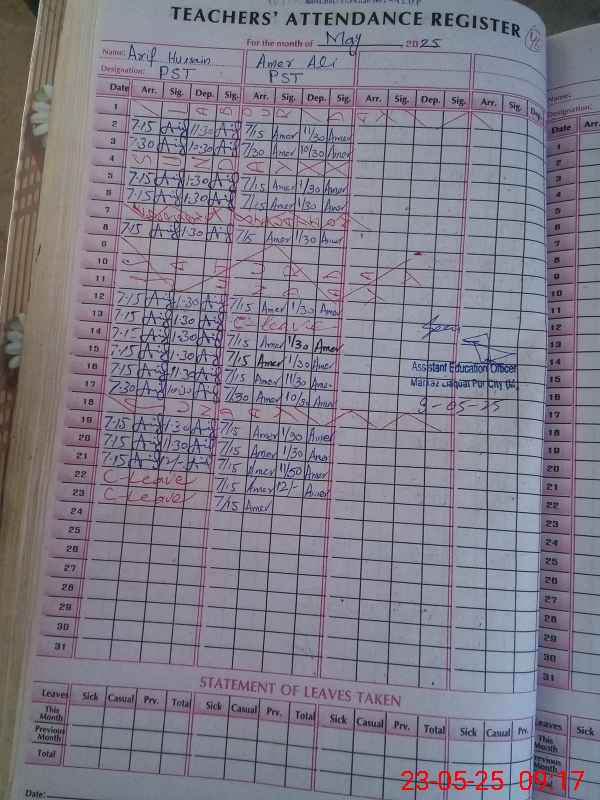 TEACHERS' ATTENDANCE REGISTER
For the month of May 2025
Name: Arif Hussain Amer Ali Name:
Designation: PST PST Designation:
Date Arr. Sig. Dep. Sig. Arr. Sig. Dep. Sig. Arr. Sig. Dep. Sig. Arr. Sig. Dep. Date Arr.
1
2 7.15 11.30 7/15 Amer 11/30 Amer
3 7.30 10.30 7/30 Amer 10/30 Amer
4 SUNDAY
5 7.15 1.30 7/15 Amer 1/30 Amer
6 7.15 1.30 7/15 Amer 1/30 Amer
7
8 7.15 1.30 7/15 Amer 1/30 Amer
9
10
11
12 7.15 1.30 7/15 Amer 1/30 Amer
13 7.15 1.30 C-Leave
14 7.15 1.30 7/15 Amer 1/30 Amer
15 7.15 1.30 7/15 Amer 1/30 Amer
Assistant Education Officer
16 7.15 11.30 7/15 Amer 11/30 Amer
17 7.30 10.30 7/30 Amer 10/30 Amer
9-05-25
18
19 7.15 1.30 7/15 Amer 1/30 Amer
20 7.15 1.30 7/15 Amer 1/30 Amer
21 7.15 12/- 7/15 Amer 11/50 Amer
22 C-Leave 7/15 Amer 12/- Amer
23 C-Leave 7/15 Amer
24
25
26
27
28
29
30
31
STATEMENT OF LEAVES TAKEN
Leaves Sick Casual Prv. Total Sick Casual Prv. Total Sick Casual Prv. Total Sick Casual Prv. Leaves Sick
This Month
Previous Month
Total
Date:
23-05-25 09:17